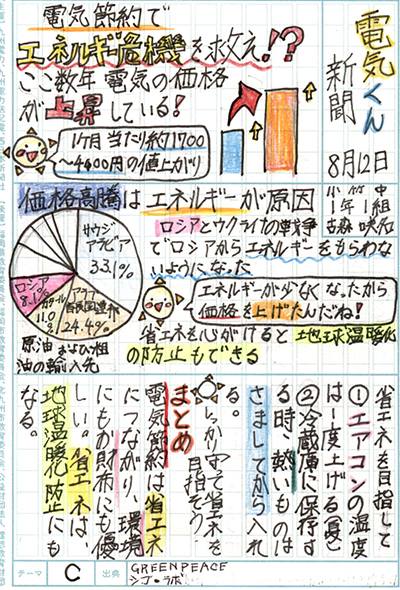 電気くん
新聞
8月12日
電気節約で
エネルギー危機を救え!?
ここ数年電気の価格
が上昇している!
1ヶ月当たり約1700
〜4400円の値上がり
価格高騰はエネルギーが原因
サウジ
アラビア
33.1%
アラブ
首長国連邦
24.4%
カタール
11.0%
ロシア
8.1%
原油および粗
油の輸入先
ロシアとウクライナの戦争
でロシアからエネルギーをもらわな
いようになった
エネルギーが少なくなったから
価格を上げたんだね!
省エネを心がけると地球温暖化
の防止もできる
省エネを目指して
①エアコンの温度
は1度上げる(夏)
②冷蔵庫に保存す
る時、熱いものは
さましてから入れ
る。
しっかり守って省エネを
目指そう
まとめ
電気節約は省エネ
につながり、環境
にもお財布にも優
しい。省エネは、
地球温暖化防止にも
なる。
テーマ
C
出典
GREENPEACE
シゴ・ラボ